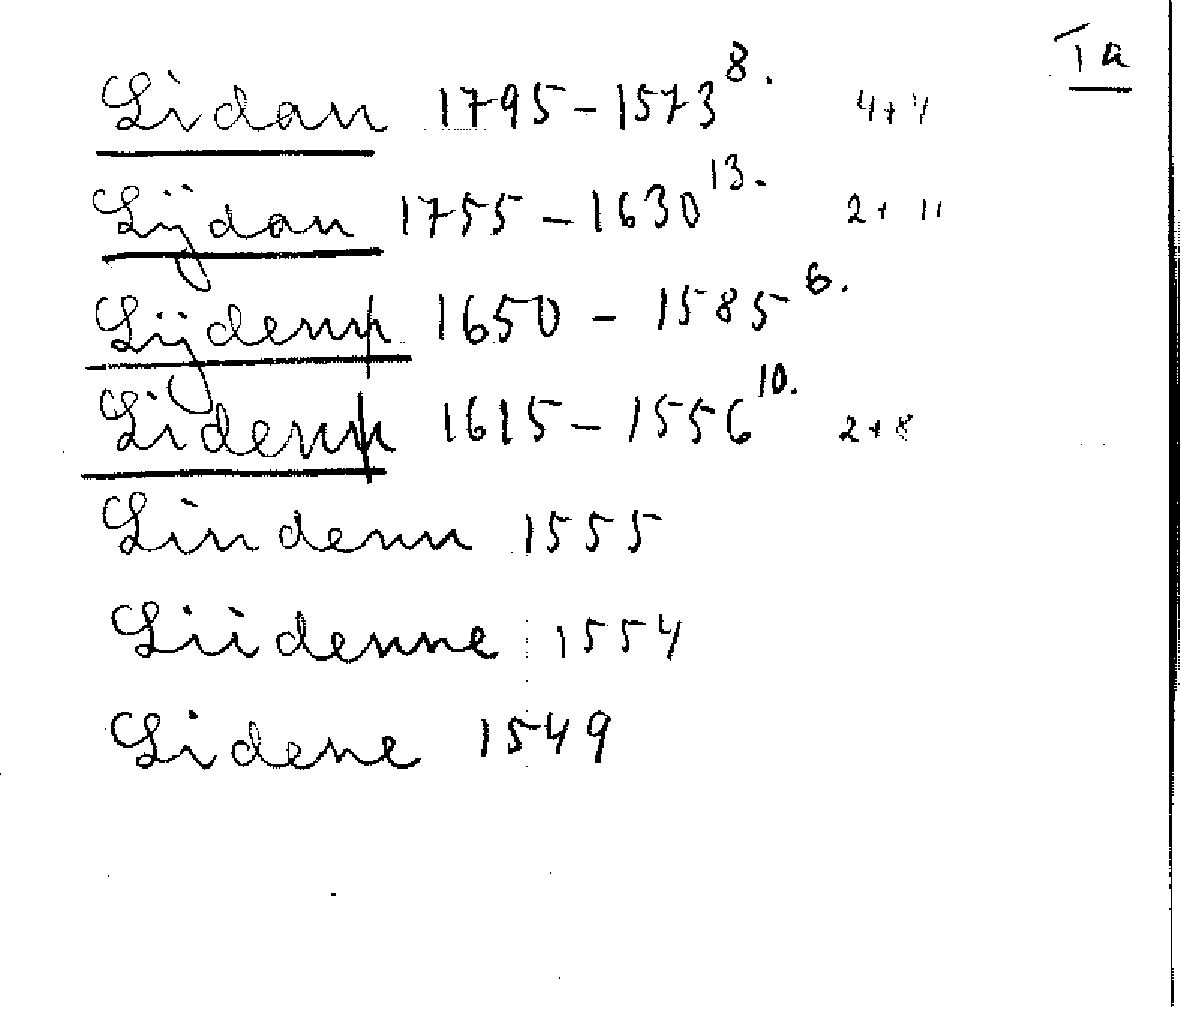 Ta
Lidan 1795-1573 8. 4+4
Lijdan 1755-1630 13. 2+11
Lijdenn 1650-1585 6.
Lidenn 1615-1556 10. 2+8
Lindenn 1555
Liidenne 1554
Lidene 1549